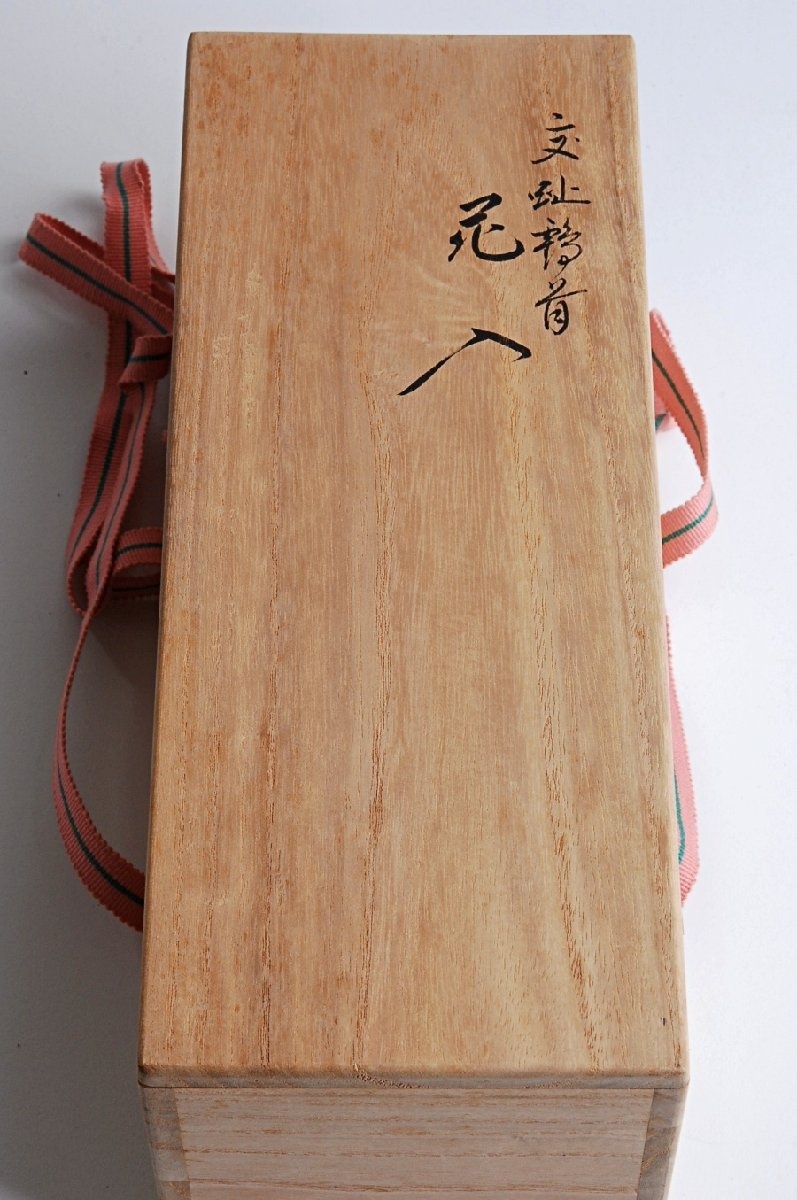 交趾鶴首
花入